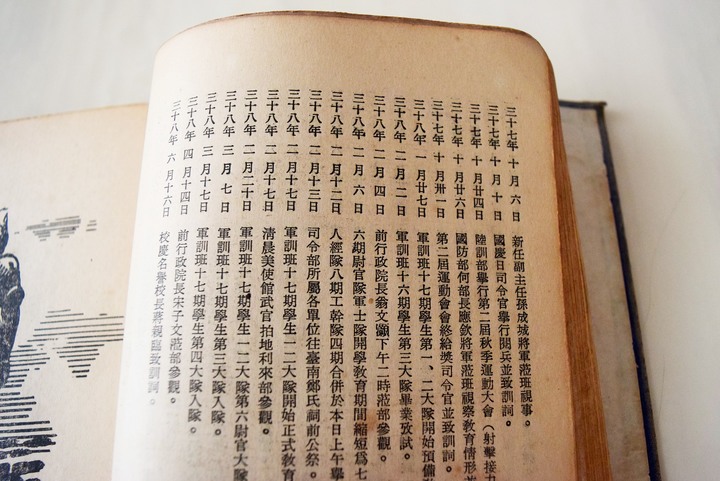 三十七年 十 月 六 日 新任副主任孫成城將軍蒞班視事。
三十七年 十 月 十 日 國慶日司令官舉行閱兵並致訓詞。
三十七年 十 月廿四日 陸訓部舉行第二屆秋季運動大會（射擊接力
三十七年 十 月廿六日 國防部何部長應欽將軍蒞班視察教育情形並
三十七年 十 月卅一日 第二屆運動會會終給獎司令官並致訓詞。
三十八年 一 月廿七日 軍訓班十七期學生第一、二大隊開始預備
三十八年 二 月 二 日 軍訓班十六期學生第三大隊畢業攷試。
三十八年 二 月 四 日 前行政院長翁文灝下午二時蒞部參觀。
三十八年 二 月 六 日 六期尉官隊軍士隊開學教育期間縮短爲七
三十八年 二 月十二日 人經隊八期工幹隊四期合併於本日上午舉
三十八年 二 月十三日 司令部所屬各單位往臺南鄭氏祠前公祭。
三十八年 二 月十七日 軍訓班十七期學生一二大隊開始正式教育
三十八年 二 月十七日 清晨美使館武官拍地利來部參觀。
三十八年 二 月二十日 軍訓班十七期學生一二大隊第六尉官大隊
三十八年 三 月 七 日 軍訓班十七期學生第三大隊入隊。
三十八年 三 月十七日 軍訓班十七期學生第四大隊入隊。
三十八年 四 月十四日 前行政院長宋子文蒞部參觀。
三十八年 六 月十六日 校慶名譽校長蔣親臨致訓詞。